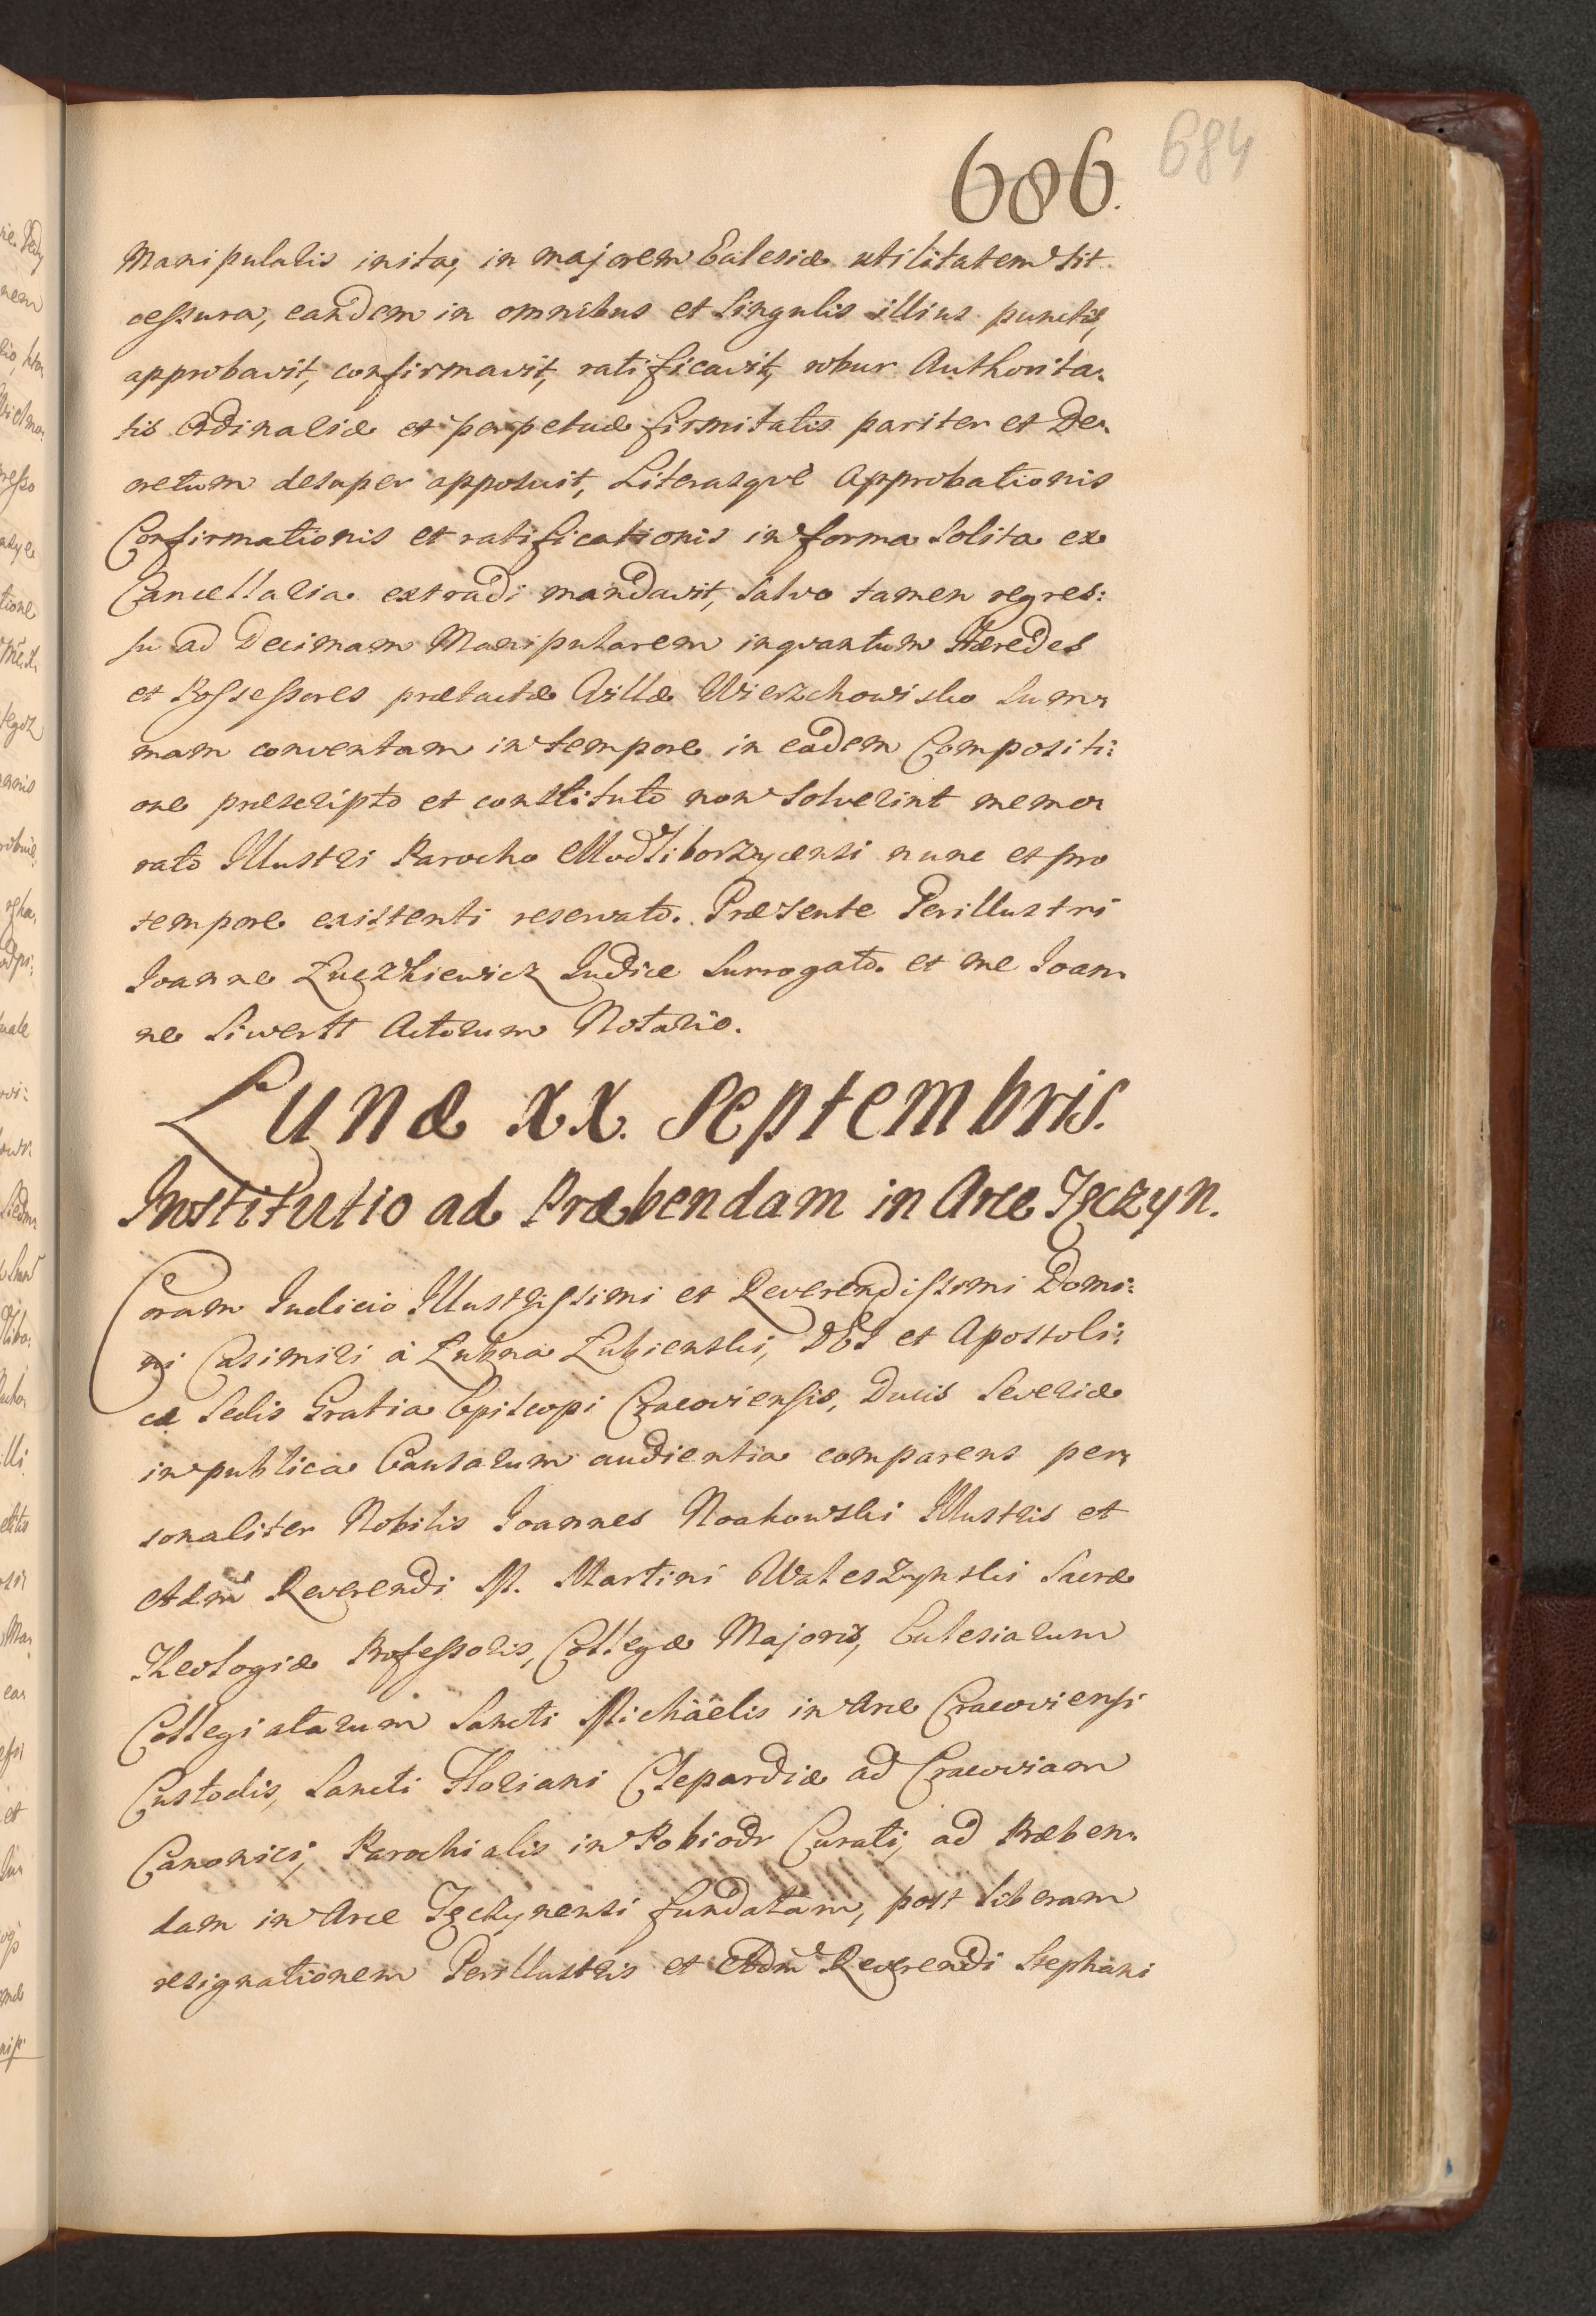 686.
684
Manipularis inita, in majorem Ecclesiæ utilitatem sit
cessura, eandem in omnibus et singulis illius punctis,
approbavit, confirmavit, ratificavit, robur Authorita-
tis Ordinariæ et perpetuæ firmitatis pariter et De-
cretum desuper apposuit, Literasqve Approbationis
Confirmationis et ratificationis in forma solita ex
Cancellaria extradi mandavit, salvo tamen regres:
su ad Decimam Manipularem inqvantum Hæredes
et Possessores prætactæ Villæ Wierzchowisko sum-
mam conventam in tempore in eadem Compositi:
one præscripto et constituto non solverint memo-
rato Illustri Parocho Modliborzycensi nunc et pro
tempore existenti reservato. Præsente Perillustri
Ioanne Łuczkiewicz Iudice Surrogato et me Ioan-
ne Siwertt Actorum Notario.
Lunæ XX. Septembris.
Institutio ad Præbendam in Arce Tęczyn.
Coram Iudicio Illustrissimi et Reverendissimi Domi:
ni Casimiri à Łubna Łubienski, DEI et Apostoli:
cæ Sedis Gratia Episcopi Cracoviensis, Ducis Severiæ
in publica Causarum audientia comparens per-
sonaliter Nobilis Ioannes Noakowski Illustris et
Adm Reverendi M. Martini Waleszynski Sacræ
Theologiæ Professoris, Collegæ Majoris, Ecclesiarum
Collegiatarum Sancti Michäelis in Arce Cracoviensi
Custodis, Sancti Floriani Clepardiæ ad Cracoviam
Canonici, Parochialis in Pobiodr Curati, ad Præben-
dam in Arce Tęczynensi fundatam, post liberam
resignationem Perillustris et Adm Reverendi Stephani